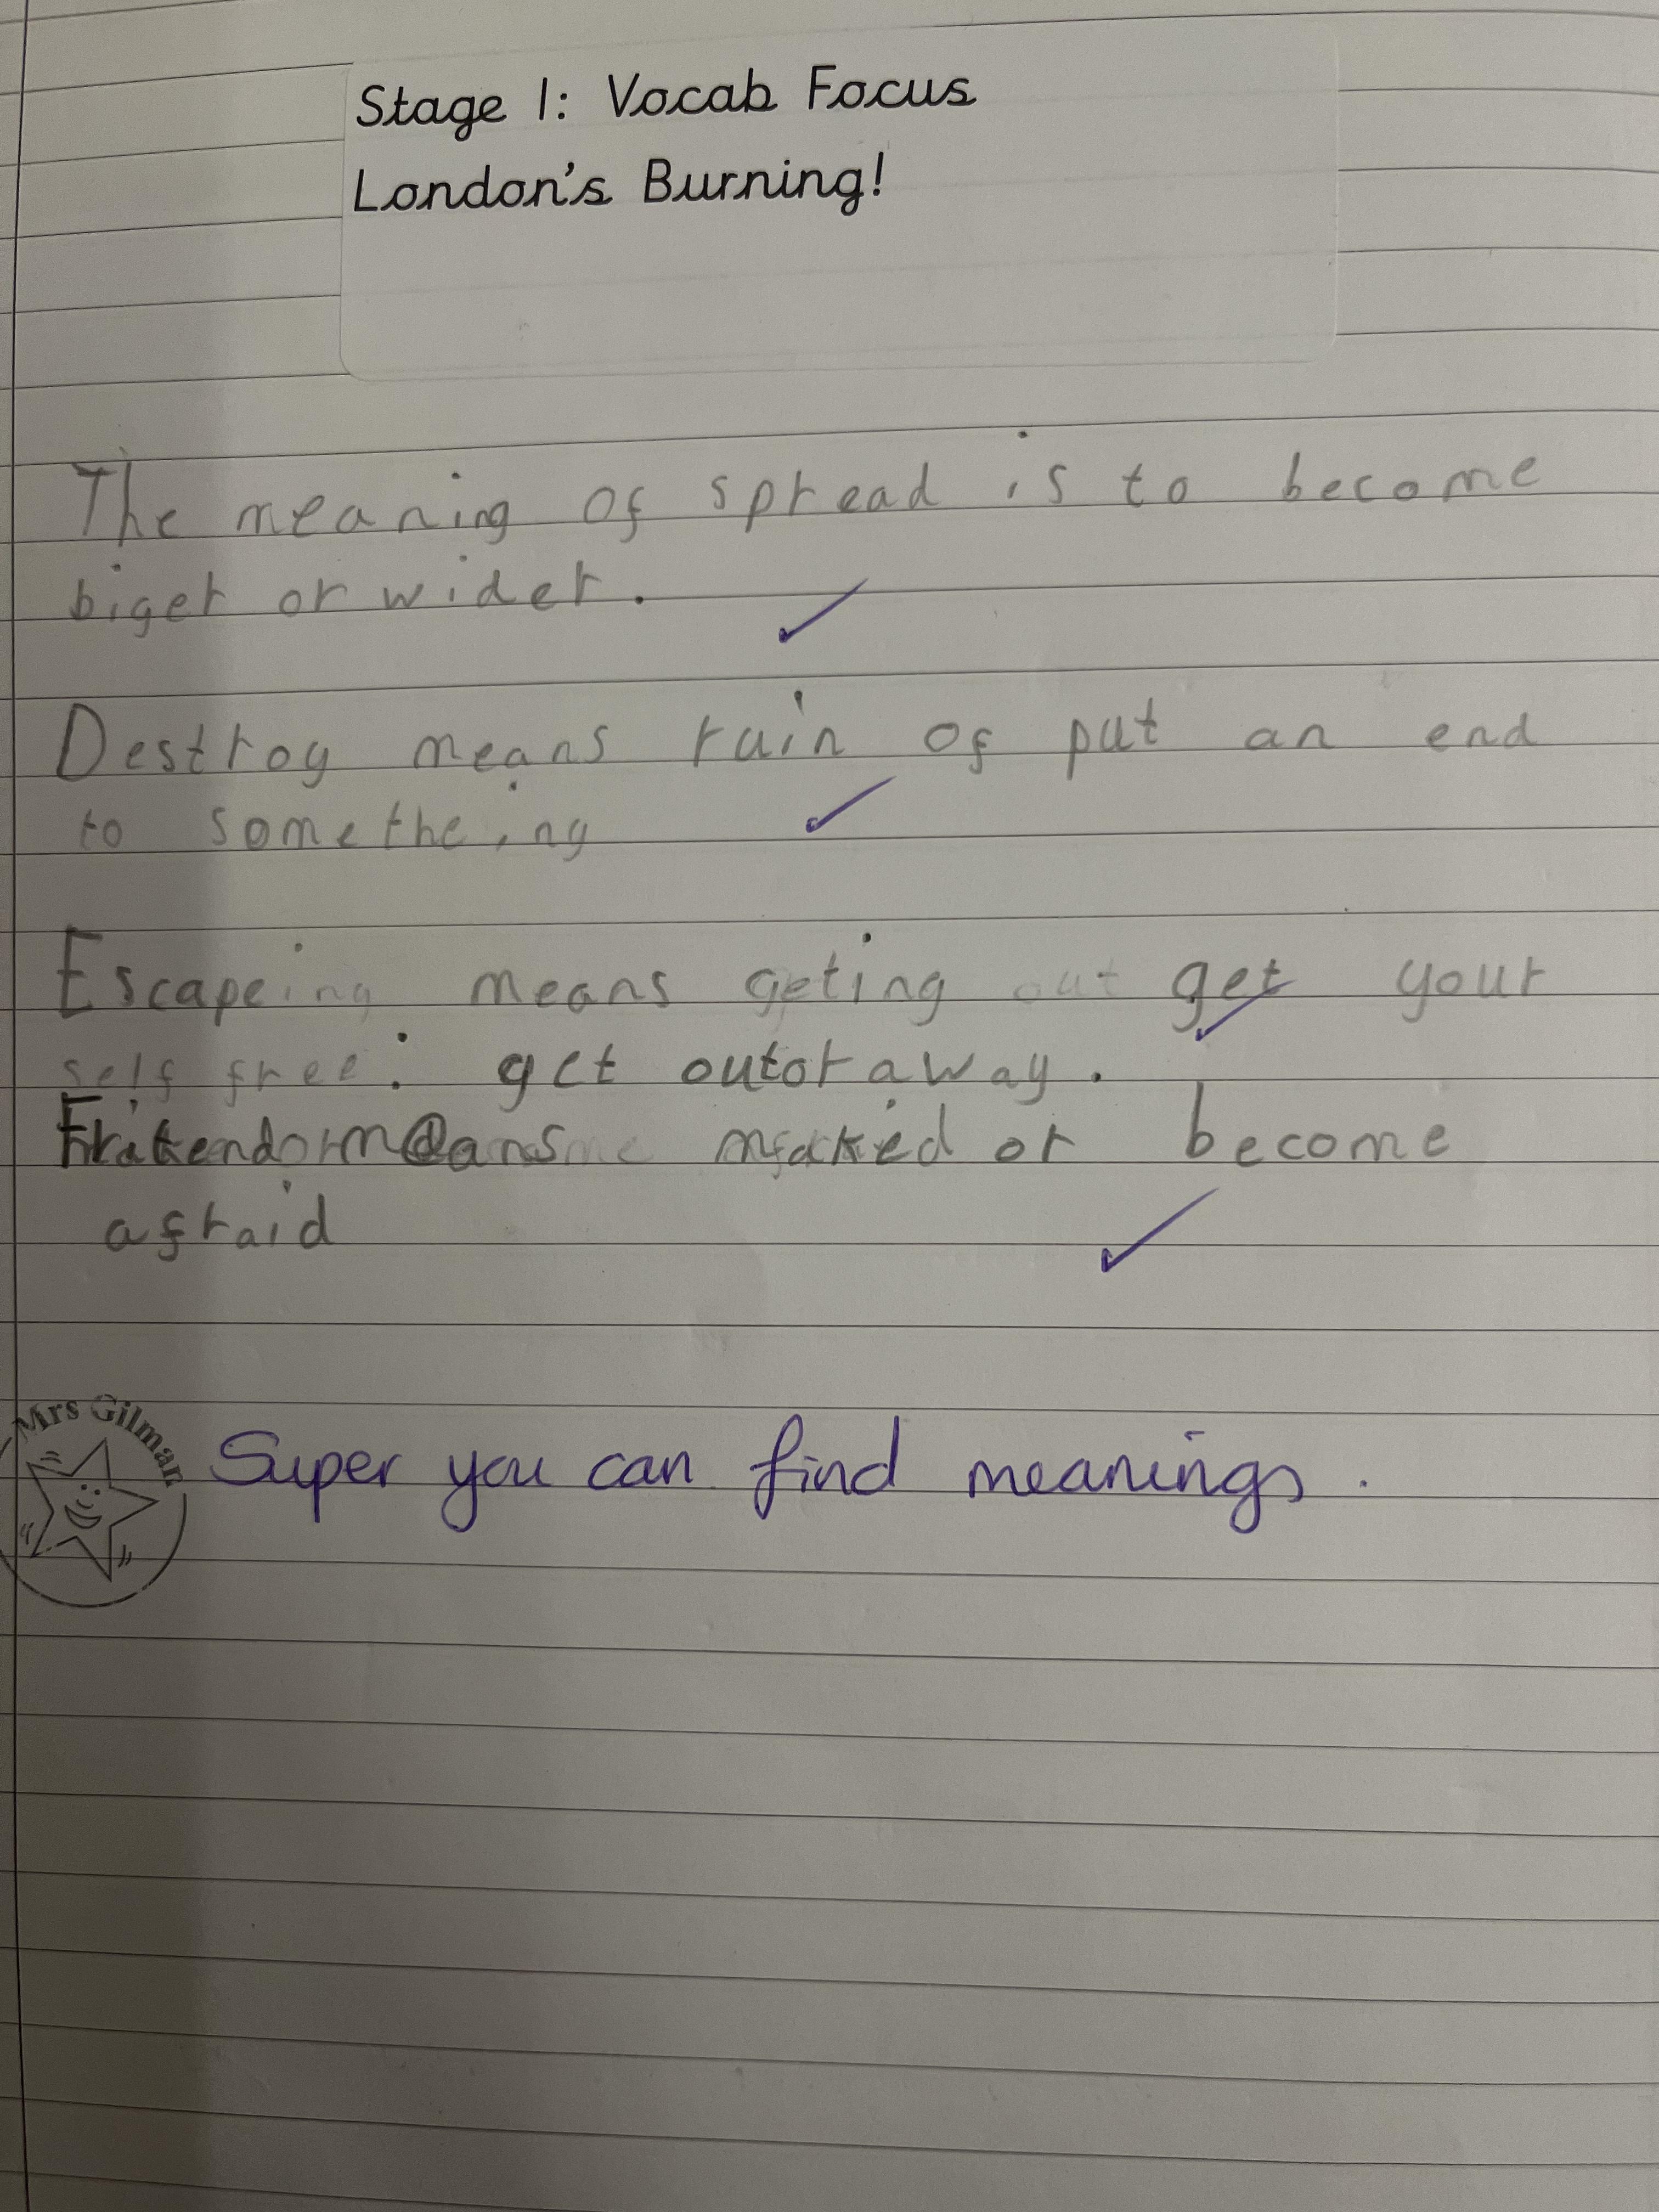 Stage 1: Vocab Focus
London's Burning!
The meaning of spread is to become
biger or wider.
Destroy means ruin of put an end
to sometheing
Escapeing means geting out get your
self free: get outor away.
means maked or become
afraid
Mrs Gilman
Super you can find meanings.